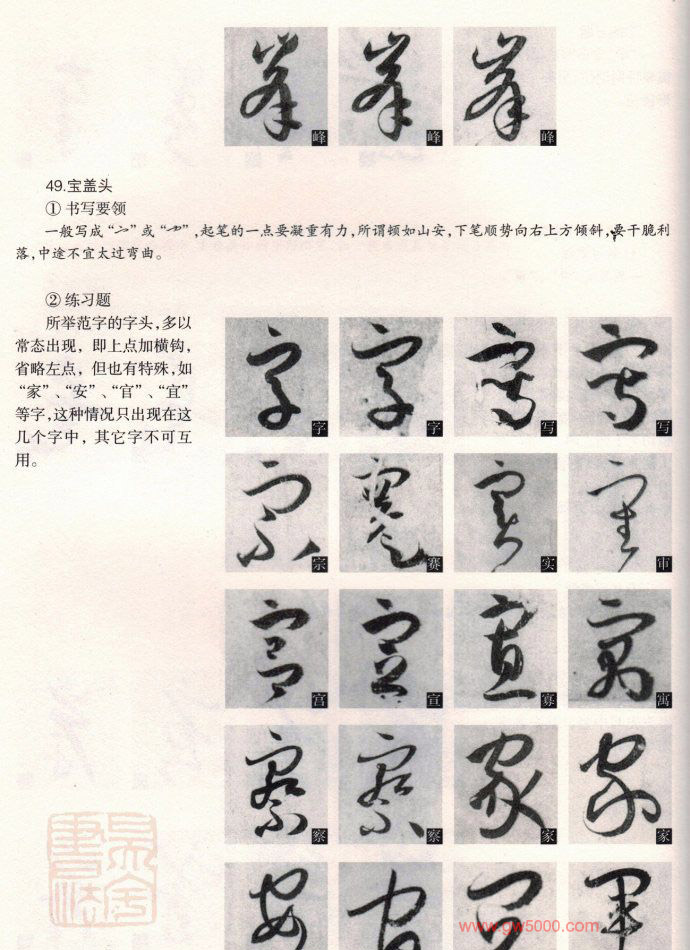 峰 峰 峰
49.宝盖头
① 书写要领
一般写成“”或“”,起笔的一点要凝重有力,所谓顿如山安,下笔顺势向右上方倾斜,要干脆利
落,中途不宜太过弯曲。
② 练习题
所举范字的字头,多以
常态出现，即上点加横钩,
省略左点，但也有特殊,如
“家”、“安”、“官”、“宜”
等字,这种情况只出现在这
几个字中，其它字不可互
用。
字 字 写 写
宗 赛 实 审
宫 宣 寡 寓
察 察 家 家
www.gw5000.com